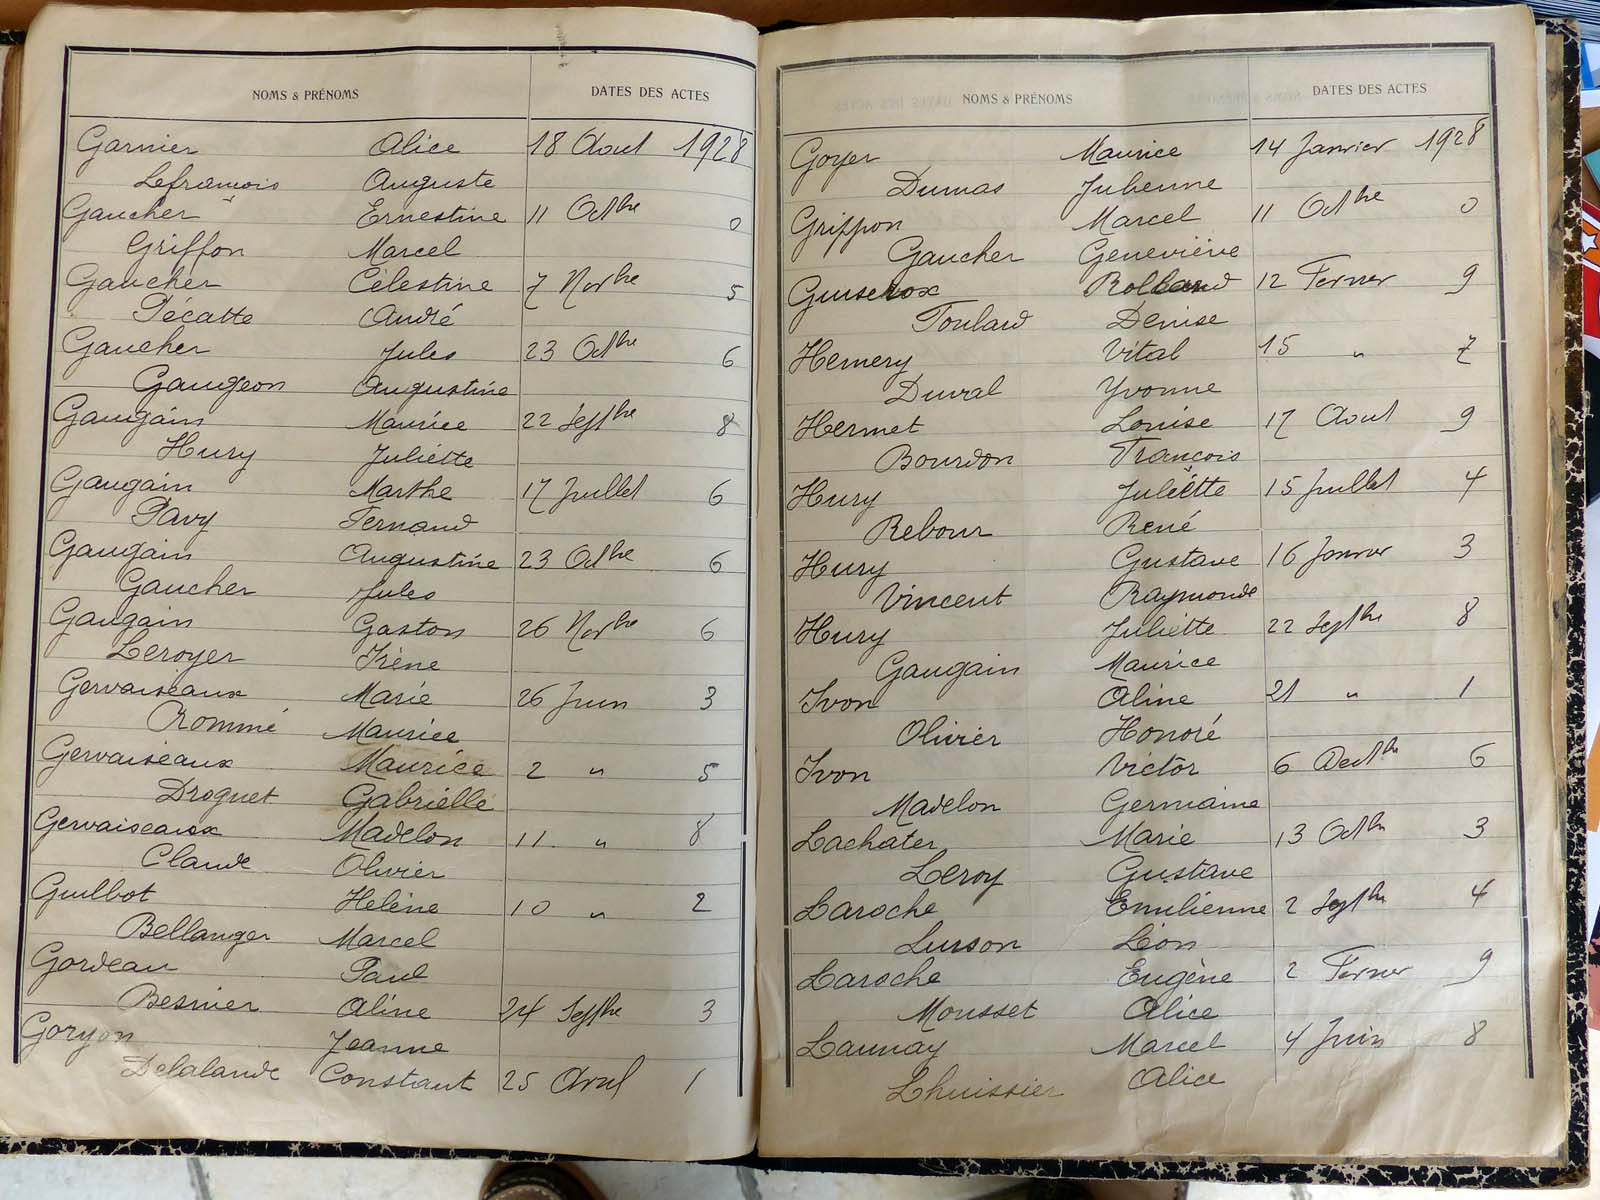 NOMS & PRÉNOMS DATES DES ACTES
Garnier Alice 18 Aout 1928
Lefrançois Auguste
Gaucher Ernestine 11 Octbre 0
Griffon Marcel
Gaucher Célestine 7 Novbre 5
Pécatte André
Gaucher Jules 23 Octbre 6
Gaugeon Augustine
Gaugain Maurice 22 Septbre 8
Hury Juliette
Gaugain Marthe 17 Juillet 6
Pavy Fernand
Gaugain Augustine 23 Octbre 6
Gaucher Jules
Gaugain Gaston 26 Novbre 6
Leroyer Irène
Gervaiseaux Marie 26 Juin 3
Rommé Maurice
Gervaiseaux Maurice 2 " 5
Droguet Gabrielle
Gervaiseaux Madelon 11 " 8
Claude Olivier
Guilbot Helène 10 " 2
Bellanger Marcel
Gordeau Paul
Besnier Aline 24 Septbre 3
Goryon Jeanne
Delalande Constant 25 Avril 1
NOMS & PRÉNOMS DATES DES ACTES
Goyer Maurice 14 Janvier 1928
Dumas Julienne
Grippon Marcel 11 Octbre 0
Gaucher Geneviève
Rolland 12 Fevrier 9
Toulard Denise
Hemery Vital 15 " 7
Duval Yvonne
Hermet Louise 17 Aout 9
Bourdon François
Hury Juliette 15 Juillet 4
Rebour René
Hury Gustave 16 Janvier 3
Vincent Raymonde
Hury Juliette 22 Septbre 8
Gaugain Maurice
Ivon Aline 21 " 1
Olivier Honoré
Ivon Victor 6 6
Madelon Germaine
Lachater Marie 13 Octbre 3
Leroy Gustave
Laroche Emilienne 2 Septbre 4
Lusson Léon
Laroche Eugène 2 Fevrier 9
Mousset Alice
Launay Marcel 4 Juin 8
Lhuissier Alice